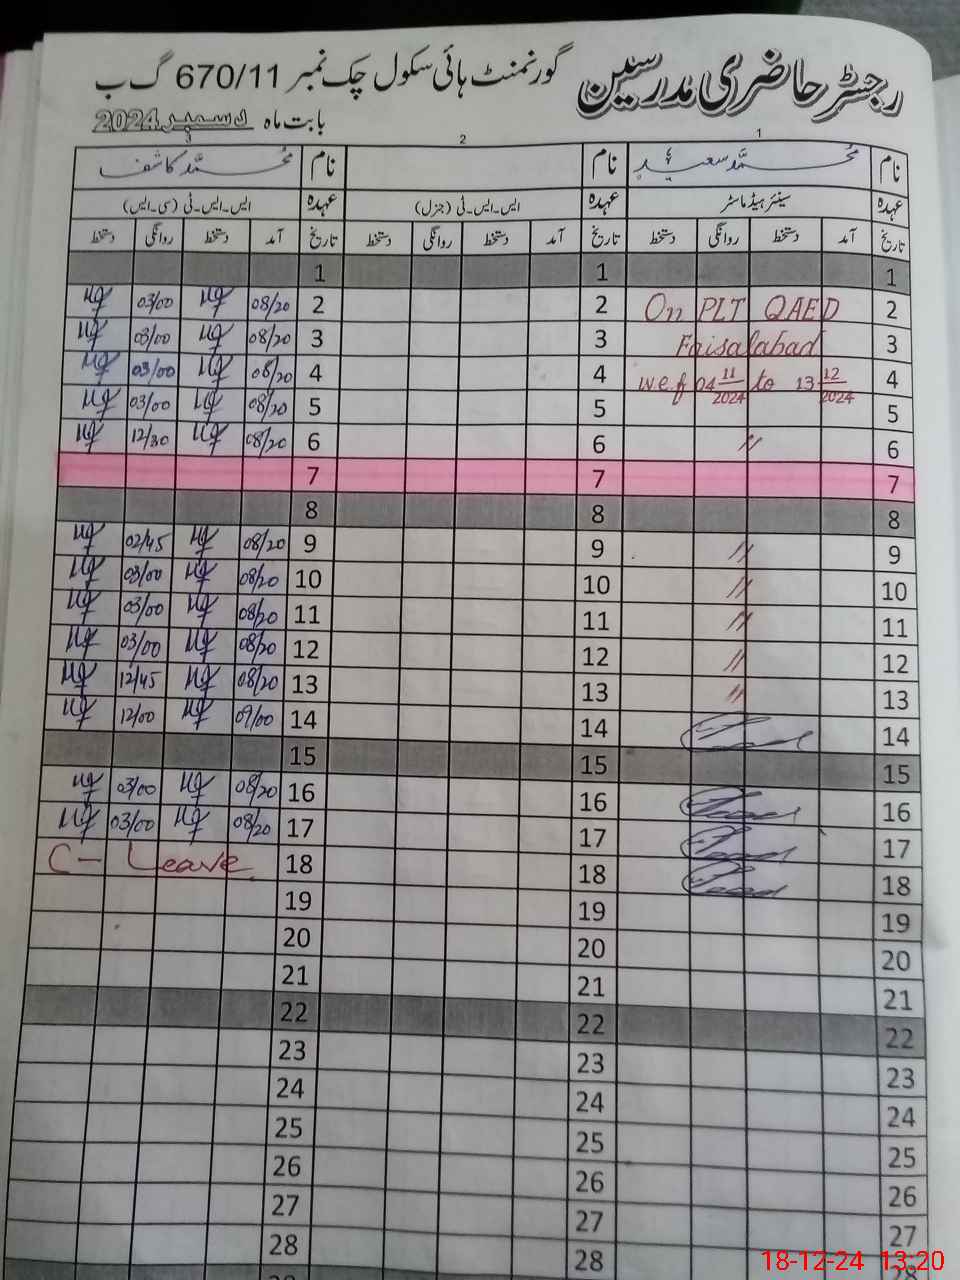 رجسٹر حاضری مدرسین گورنمنٹ ہائی سکول چک نمبر 670/11 گ ب
بابت ماہ دسمبر 2024
1 2
نام محمد سعید نام نام محمد کاشف
عہدہ سینئر ہیڈ ماسٹر عہدہ ایس۔ایس۔ٹی (جنرل) عہدہ ایس۔ایس۔ٹی (سی۔ایس)
تاریخ آمد دستخط روانگی دستخط تاریخ آمد دستخط روانگی دستخط تاریخ آمد دستخط روانگی دستخط
1 1 1
2 On PLT QAED 2 2 08/20 03/00
3 Faisalabad 3 3 08/20 03/00
4 w.e.f 04 11/2024 to 13 12/2024 4 4 08/20 03/00
5 5 5 08/20 03/00
6 〃 6 6 08/20 12/30
7 7 7
8 8 8
9 〃 9 9 08/20 02/45
10 〃 10 10 08/20 03/00
11 〃 11 11 08/20 03/00
12 〃 12 12 08/20 03/00
13 〃 13 13 08/20 12/45
14 14 14 09/00 12/00
15 15 15
16 16 16 08/20 03/00
17 17 17 08/20 03/00
18 18 18 C- Leave
19 19 19
20 20 20
21 21 21
22 22 22
23 23 23
24 24 24
25 25 25
26 26 26
27 27 27
28 28 28
18-12-24 13:20